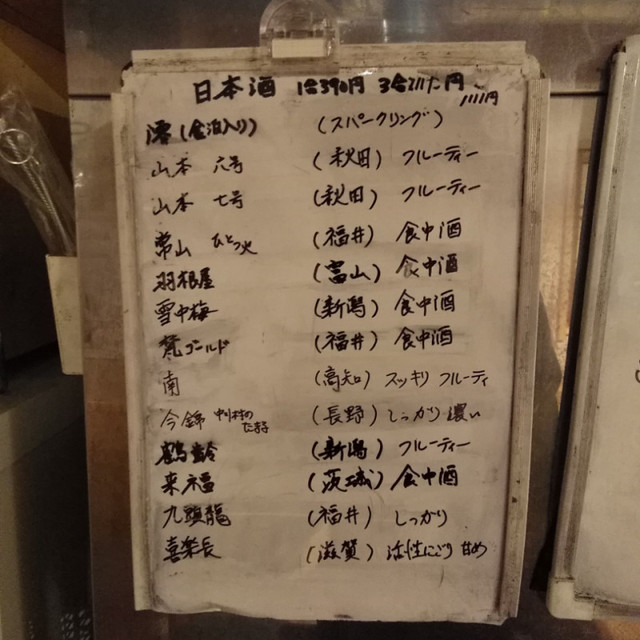 日本酒 1合390円 3合1111円
1111円
澪(金泊入り) (スパークリング)
山本 六号 (秋田) フルーティー
山本 七号 (秋田) フルーティー
常山 ひとつ火 (福井) 食中酒
羽根屋 (富山) 食中酒
雪中梅 (新潟) 食中酒
梵ゴールド (福井) 食中酒
南 (高知) スッキリ フルーティ
今錦 中川村のたま子 (長野) しっかり 濃い
鶴齢 (新潟) フルーティー
来福 (茨城) 食中酒
九頭龍 (福井) しっかり
喜楽長 (滋賀) 活性にごり 甘め